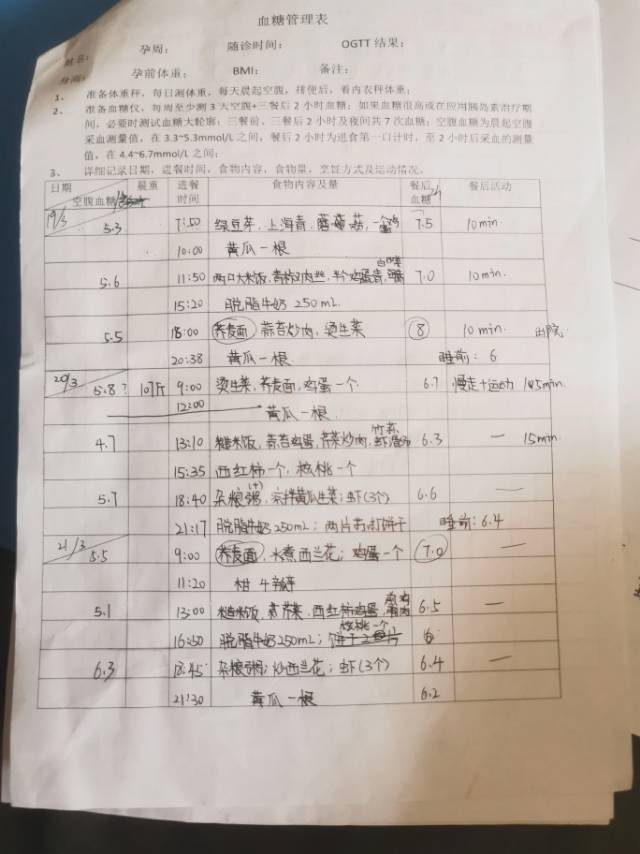 血糖管理表
姓名： 孕周： 随诊时间： OGTT 结果：
身高： 孕前体重： BMI： 备注：
1、 准备体重秤，每日测体重，每天晨起空腹，排便后，着内衣秤体重；
2、 准备血糖仪，每周至少测 3 大空腹+三餐后 2 小时血糖；如果血糖很高或在应用胰岛素治疗期
间，必要时测试血糖大轮廓：三餐前，三餐后 2 小时及夜间共 7 次血糖；空腹血糖为晨起空腹
采血测量值，在 3.3~5.3mmol/L 之间，餐后 2 小时为进食第一口计时，至 2 小时后采血的测量
值，在 4.4~6.7mmol/L 之间；
3、 详细记录日期，进餐时间，食物内容，食物量，烹饪方式及运动情况。
日期 空腹血糖 晨重 进餐时间 食物内容及量 餐后血糖 餐后活动
19/3 5.3 7:50 绿豆芽，上海青，蘑菇，一个鸡蛋 7.5 10min
10:00 黄瓜一根
5.6 11:50 两口大米饭，肉丝，半个鸡蛋 7.0 10min.
15:20 脱脂牛奶 250mL
5.5 18:00 荞麦面 蒜苔炒肉，烫生菜 8 10min 出院
20:38 黄瓜一根 睡前：6
20/3 5.8? 107斤 9:00 烫生菜，荞麦面，鸡蛋一个 6.7 慢走+运动 45min
12:00 黄瓜一根
4.7 13:10 糙米饭，蒜苔鸡蛋，芹菜炒肉，虾 6.3 — 15min
15:35 西红柿一个，核桃一个
5.7 18:40 杂粮粥，凉拌黄瓜生菜；虾(3个) 6.6 —
21:17 脱脂牛奶250mL；两片苏打饼干 睡前：6.4
21/3 5.5 9:00 荞麦面，水煮西兰花；鸡蛋一个 7.0 —
11:20 柑 4瓣
5.1 13:00 糙米饭，西红柿鸡蛋， 6.5 —
16:50 脱脂牛奶250mL；核桃一个 6
6.3 18:45 杂粮粥；炒西兰花；虾(3个) 6.4 —
21:30 黄瓜一根 6.2